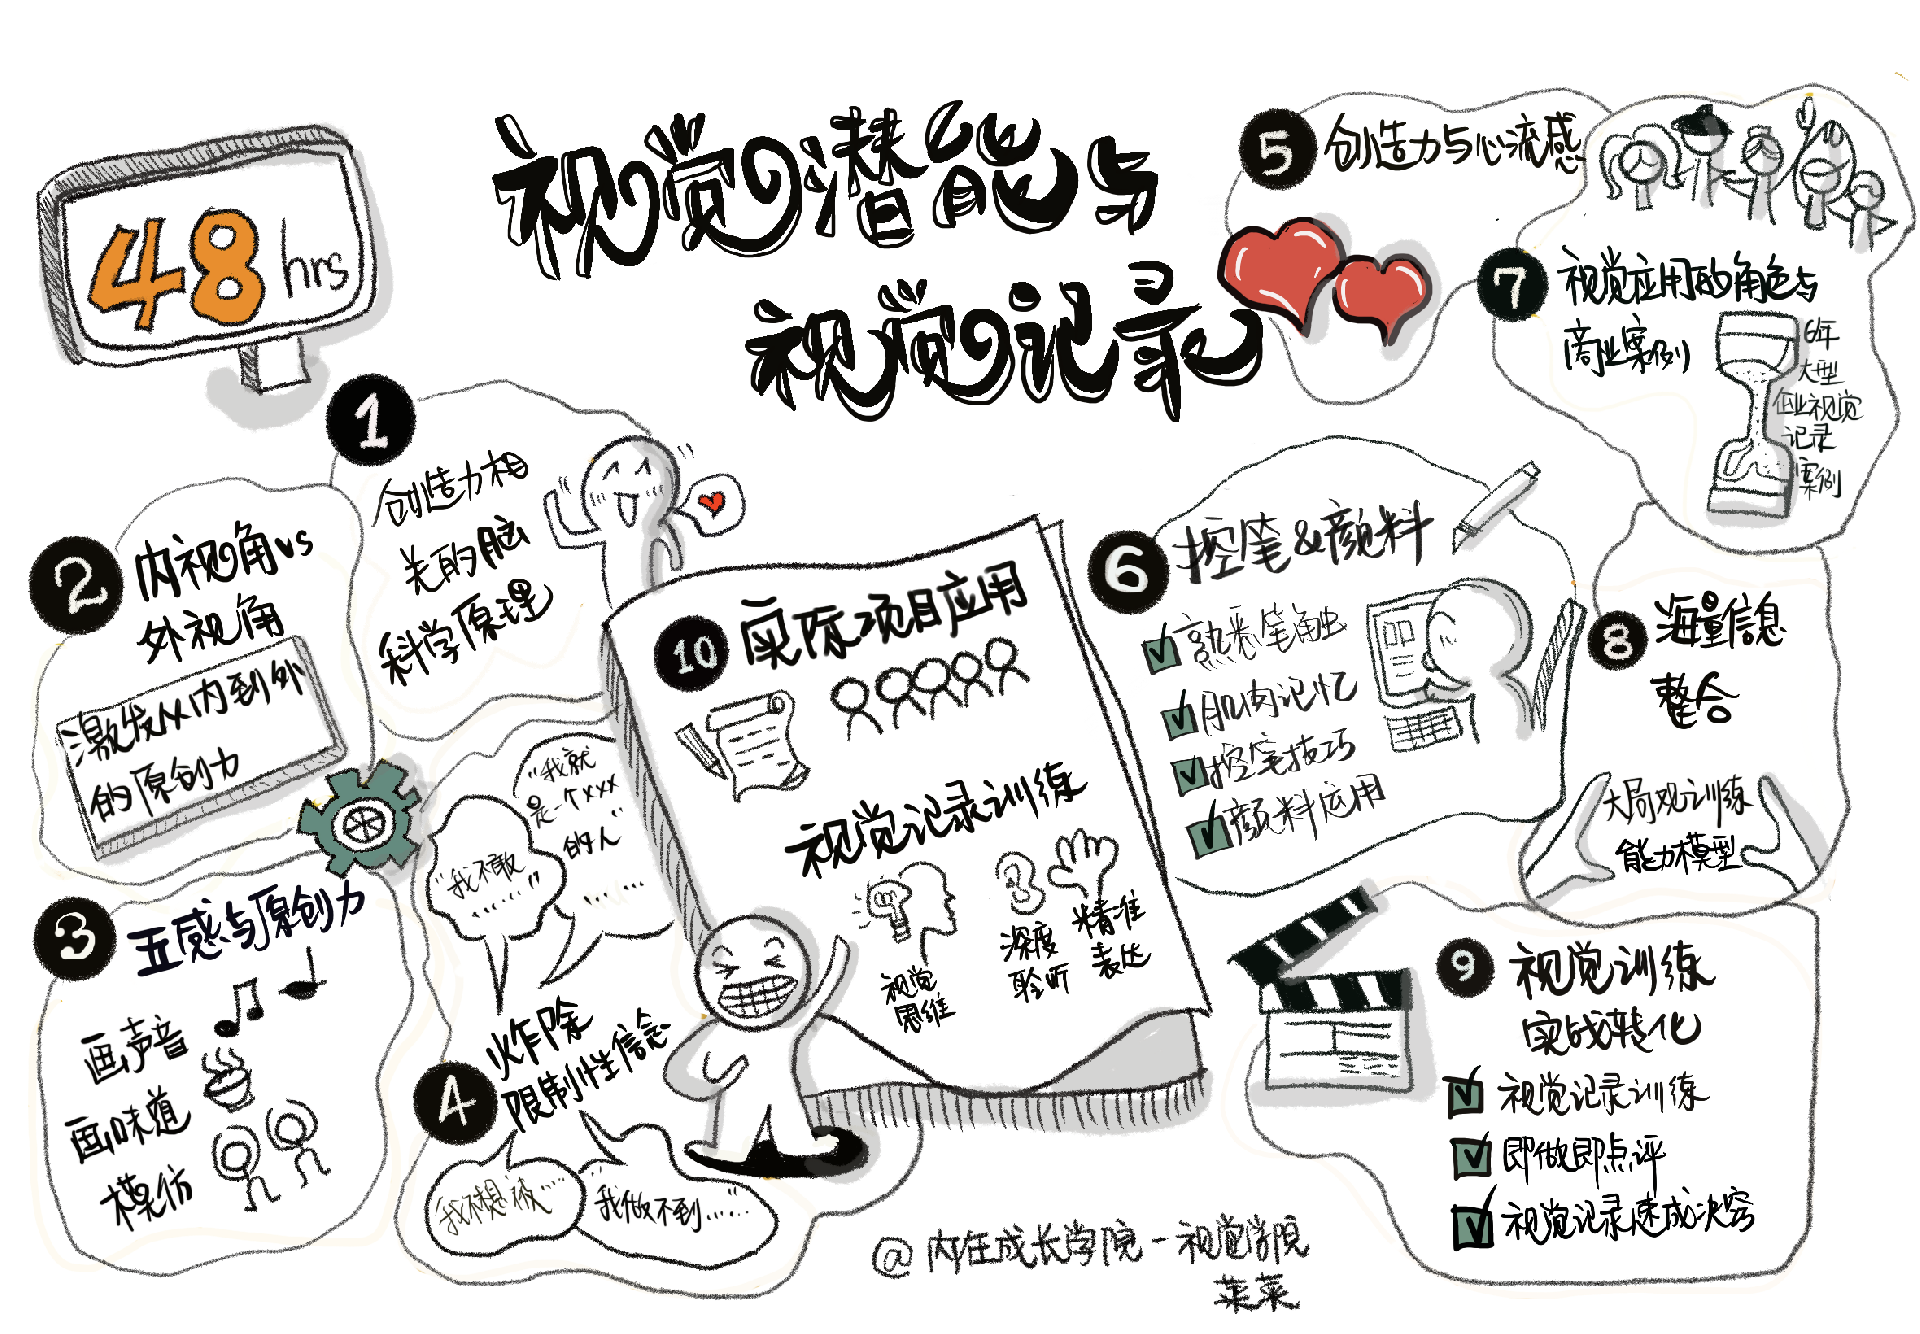 48 hrs
视觉潜能与
视觉记录
1
创造力相
关的脑
科学原理
2
内视角vs
外视角
激发从内到外
的原创力
3
五感与原创力
画声音
画味道
模仿
4
炸除
限制性信念
"我就
是一个xxx
的人"
......
"我不敢
......"
我不想被......
我做不到......"
5
创造力与心流感
6
控笔&颜料
熟悉笔触
肌肉记忆
控笔技巧
颜料应用
7
视觉应用的角色与
商业案例
6年
大型
企业视觉
记录
案例
8
海量信息
整合
大局观训练
能力模型
9
视觉训练
实战转化
视觉记录训练
即做即点评
视觉记录速成决窍
10
实际项目应用
视觉记录训练
视觉
思维
深度
聆听
精准
表达
@内在成长学院-视觉学院